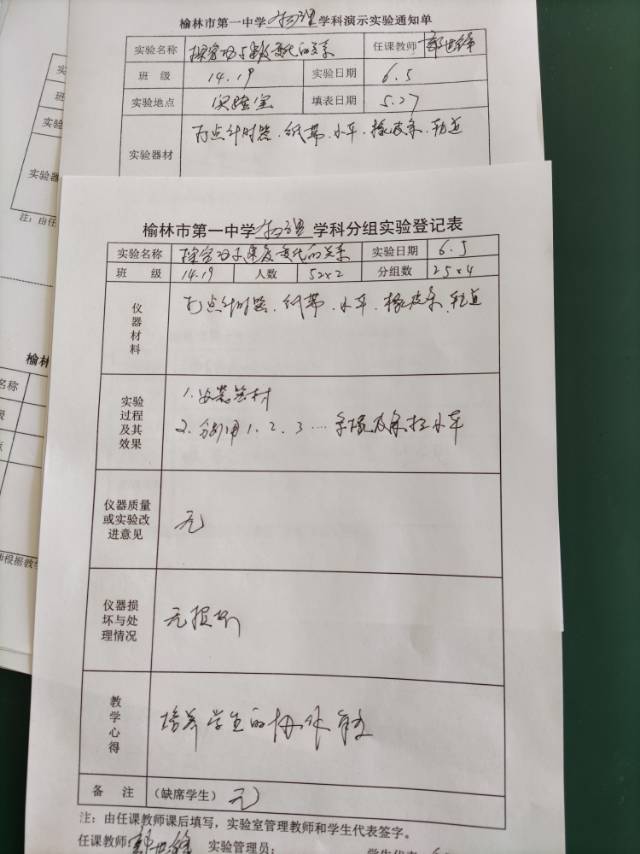 榆林市第一中学物理学科演示实验通知单
实验名称 探究功与速度变化的关系 任课教师
班级 14.19 实验日期 6.5
实验地点 实验室 填表日期 5.27
实验器材 打点计时器、纸带、小车、橡皮条、轨道
榆林市第一中学物理学科分组实验登记表
实验名称 探究功与速度变化的关系 实验日期 6.5
班级 14.19 人数 52×2 分组数 25×4
仪器材料 打点计时器、纸带、小车、橡皮条、轨道
实验过程及其效果 1.安装器材
2.分别用1、2、3…条橡皮条拉小车
仪器质量或实验改进意见 无
仪器损坏与处理情况 无损坏
教学心得 培养学生的协作能力
备注 (缺席学生) 无
注：由任课教师课后填写，实验室管理教师和学生代表签字。
任课教师 实验管理员：